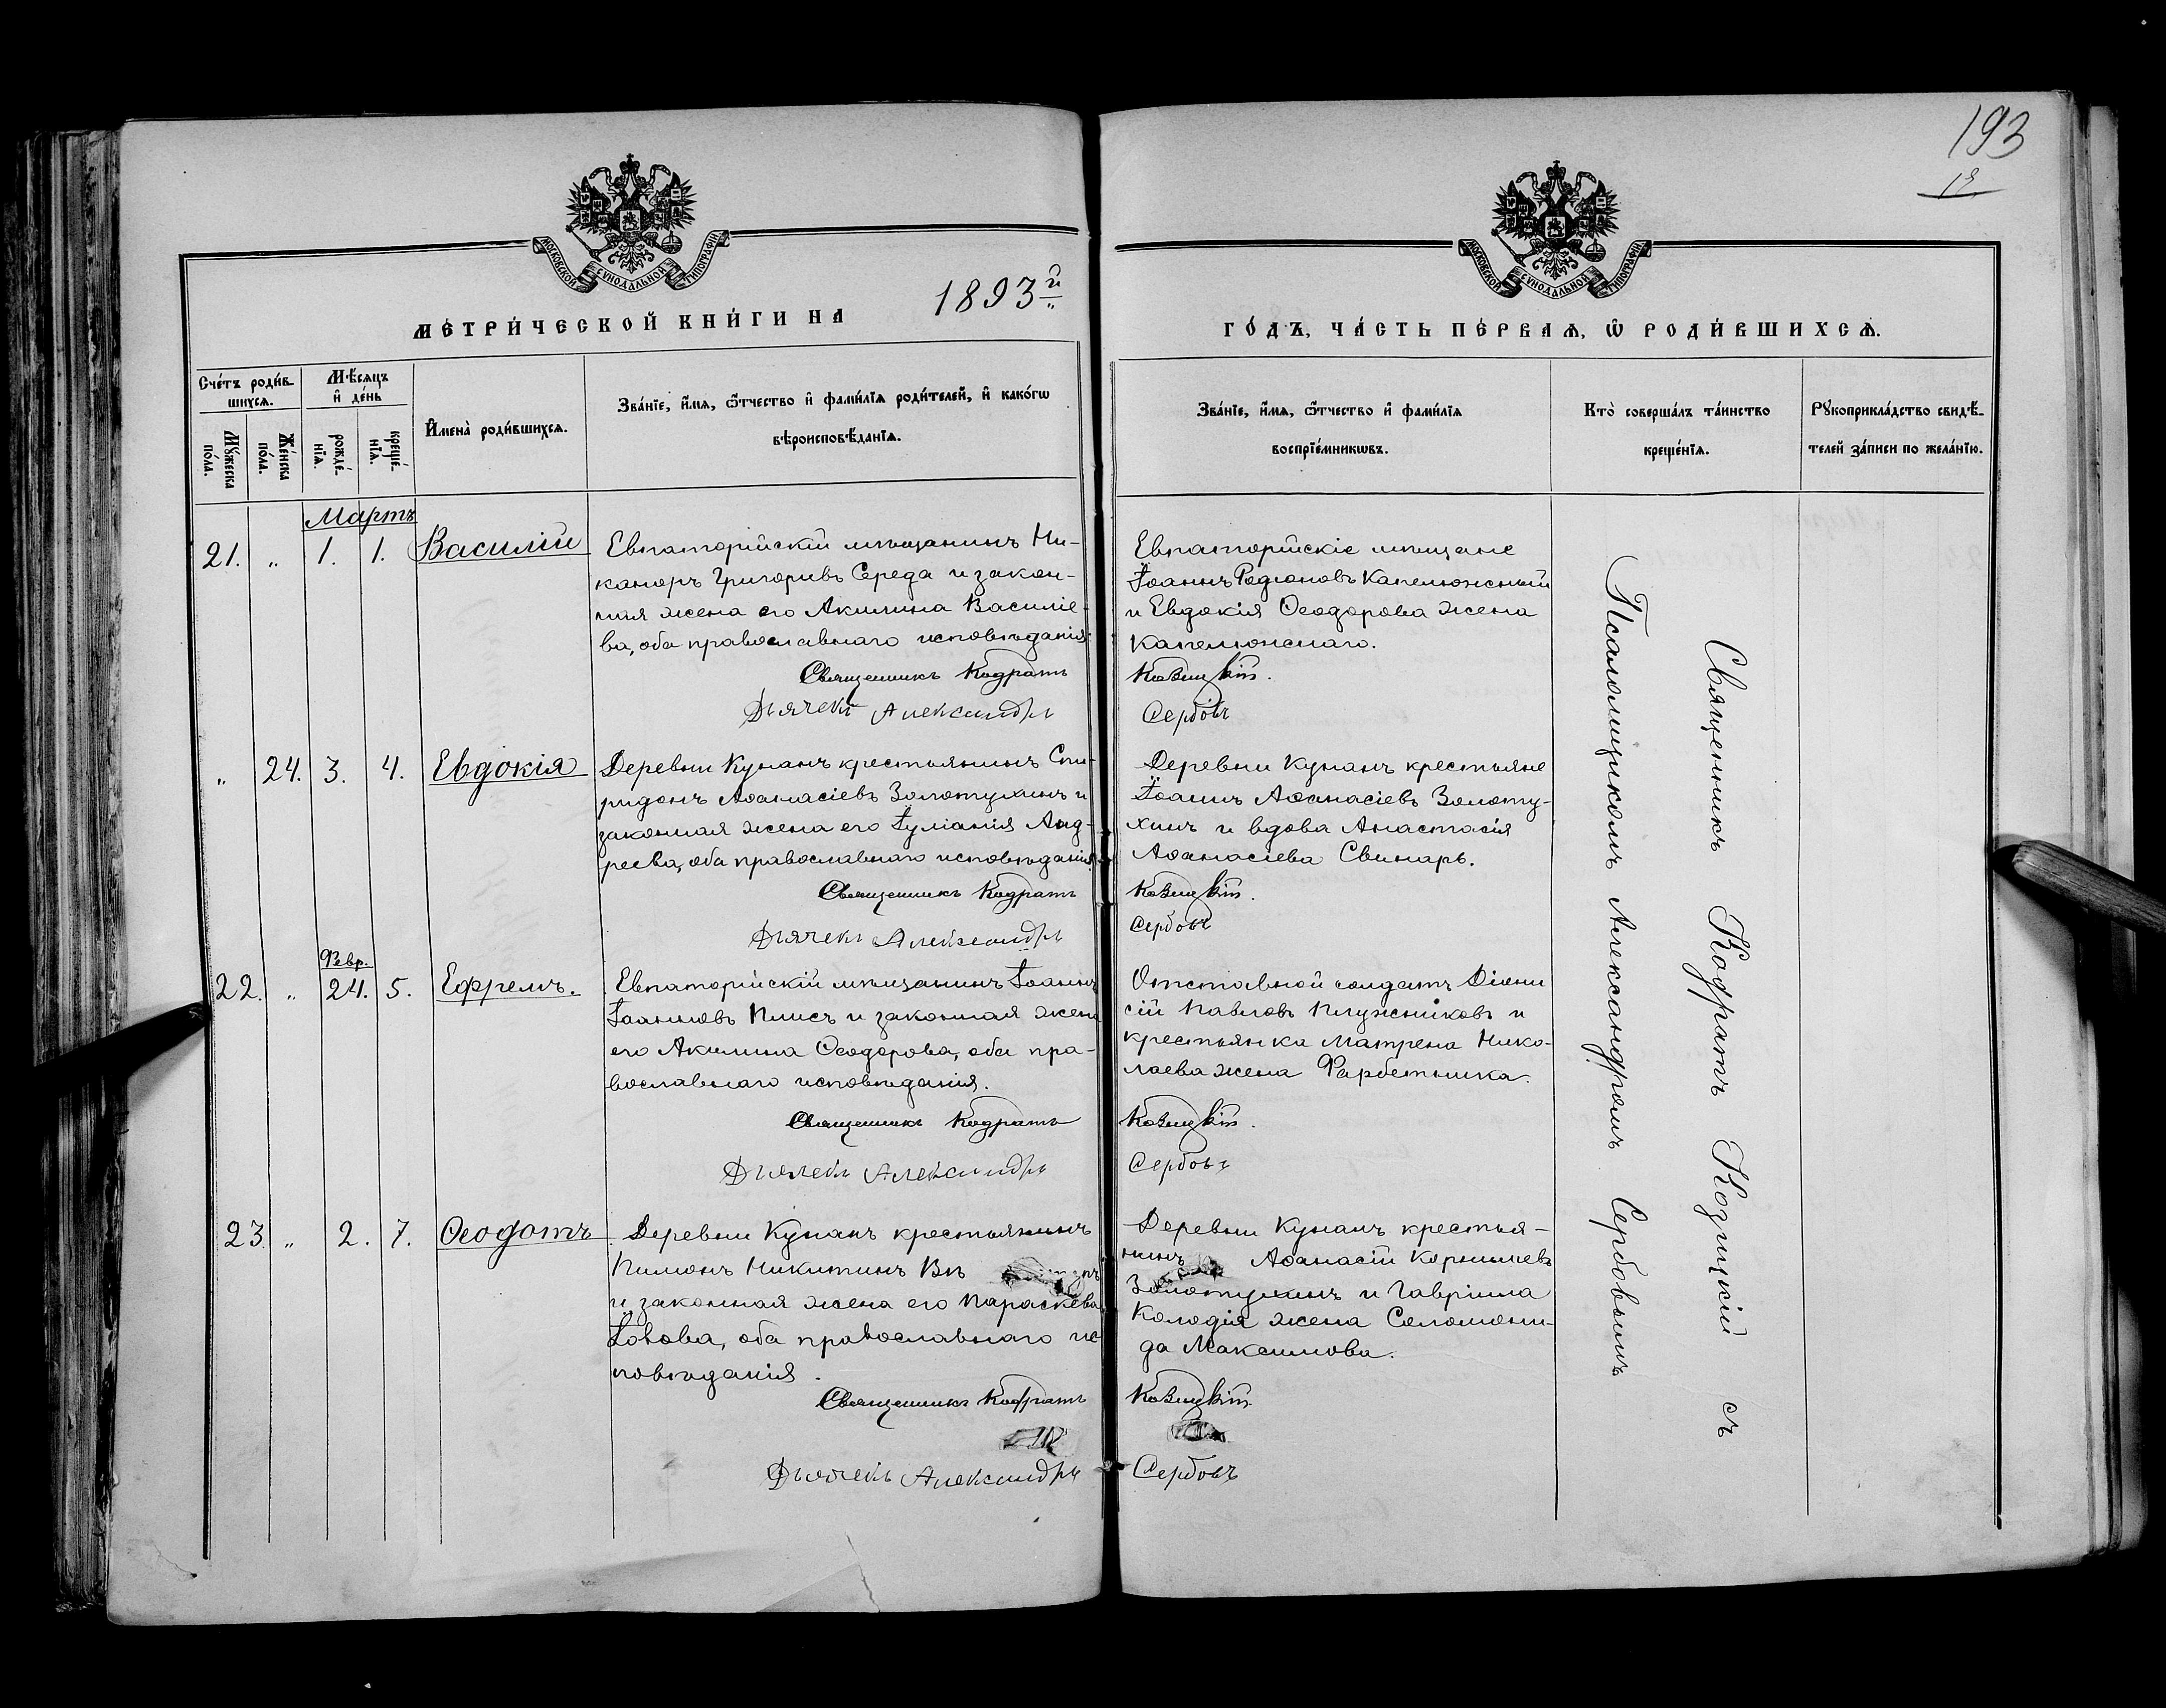 193
19
МОСКОВСКОЙ СУНОДАЛЬНОЙ ТИПОГРАФІИ
МОСКОВСКОЙ СУНОДАЛЬНОЙ ТИПОГРАФІИ
МЕТРИ́ЧЕСКОЙ КНИ́ГИ НА 1893й
ГО́ДЪ, ЧА́СТЬ ПЕ́РВАѦ, Ѡ РОДИ́ВШИХСѦ.
Сче́тъ роди́вшихсѧ.
Му́жеска по́ла.
Же́нска по́ла.
Мѣ́сяцъ и де́нь
рожде́нїѧ.
креще́нїѧ.
Имена̀ роди́вшихсѧ.
Зва́нїе, и́мѧ, ѻ́тчество и фами́лїѧ роди́телей, и како́гѡ
вѣроисповѣ́данїѧ.
Зва́нїе, и́мѧ, ѻ́тчество и фами́лїѧ
воспрїе́мникѡвъ.
Кто̀ соверша́лъ та́инство
креще́нїѧ.
Рꙋкоприкла́дство свидѣ́-
телей за́писи по жела́нїю.
Мартъ
21. „ 1. 1. Василій
Евпаторійскій мѣщанинъ Ни-
каноръ Григорьевъ Середа и закон-
ная жена его Акилина Василіе-
ва, оба православнаго исповѣданія.
Священникъ Кодратъ
Дьячекъ Александръ
Евпаторійскіе мѣщане
Іоаннъ Родіоновъ Капелюжный
и Евдокія Ѳеодорова жена
Капелюжнаго.
Козицкій.
Сербовъ
„ 24. 3. 4. Евдокія
Деревни Кунанъ крестьянинъ Спи-
ридонъ Аѳанасіевъ Золотухинъ и
законная жена его Іуліанія Анд-
реева, оба православнаго исповѣданія.
Священникъ Кодратъ
Дьячекъ Александръ
Деревни Кунанъ крестьяне
Іоаннъ Аѳанасіевъ Золоту-
хинъ и вдова Анастасія
Аѳанасіева Свинарь.
Козицкій.
Сербовъ
Февр.
22. „ 24. 5. Ефремъ.
Евпаторійскій мѣщанинъ Іоаннъ
Іоанновъ Плисъ и законная жена
его Акилина Ѳеодорова, оба пра-
вославнаго исповѣданія.
Священникъ Кодратъ
Дьячекъ Александръ
Отставной солдатъ Діони
сій Павловъ Плужниковъ и
крестьянка Матрена Нико-
лаева жена Фарбетника.
Козицкій.
Сербовъ
23. „ 2. 7. Ѳеодотъ
Деревни Кунанъ крестьянинъ
Пимонъ Никитинъ
и законная жена его Параскева
Іовова, оба православнаго ис
повѣданія.
Священникъ Кодратъ
Дьячекъ Александръ
Деревни Кунанъ крестья-
нинъ Аѳанасій Корнилевъ
Золотухинъ и Гавріила
Колодія жена Соломони-
да Максимова.
Козицкій
Сербовъ
Священникъ Кодратъ Козицкій съ
Псаломщикомъ Александромъ Сербовымъ